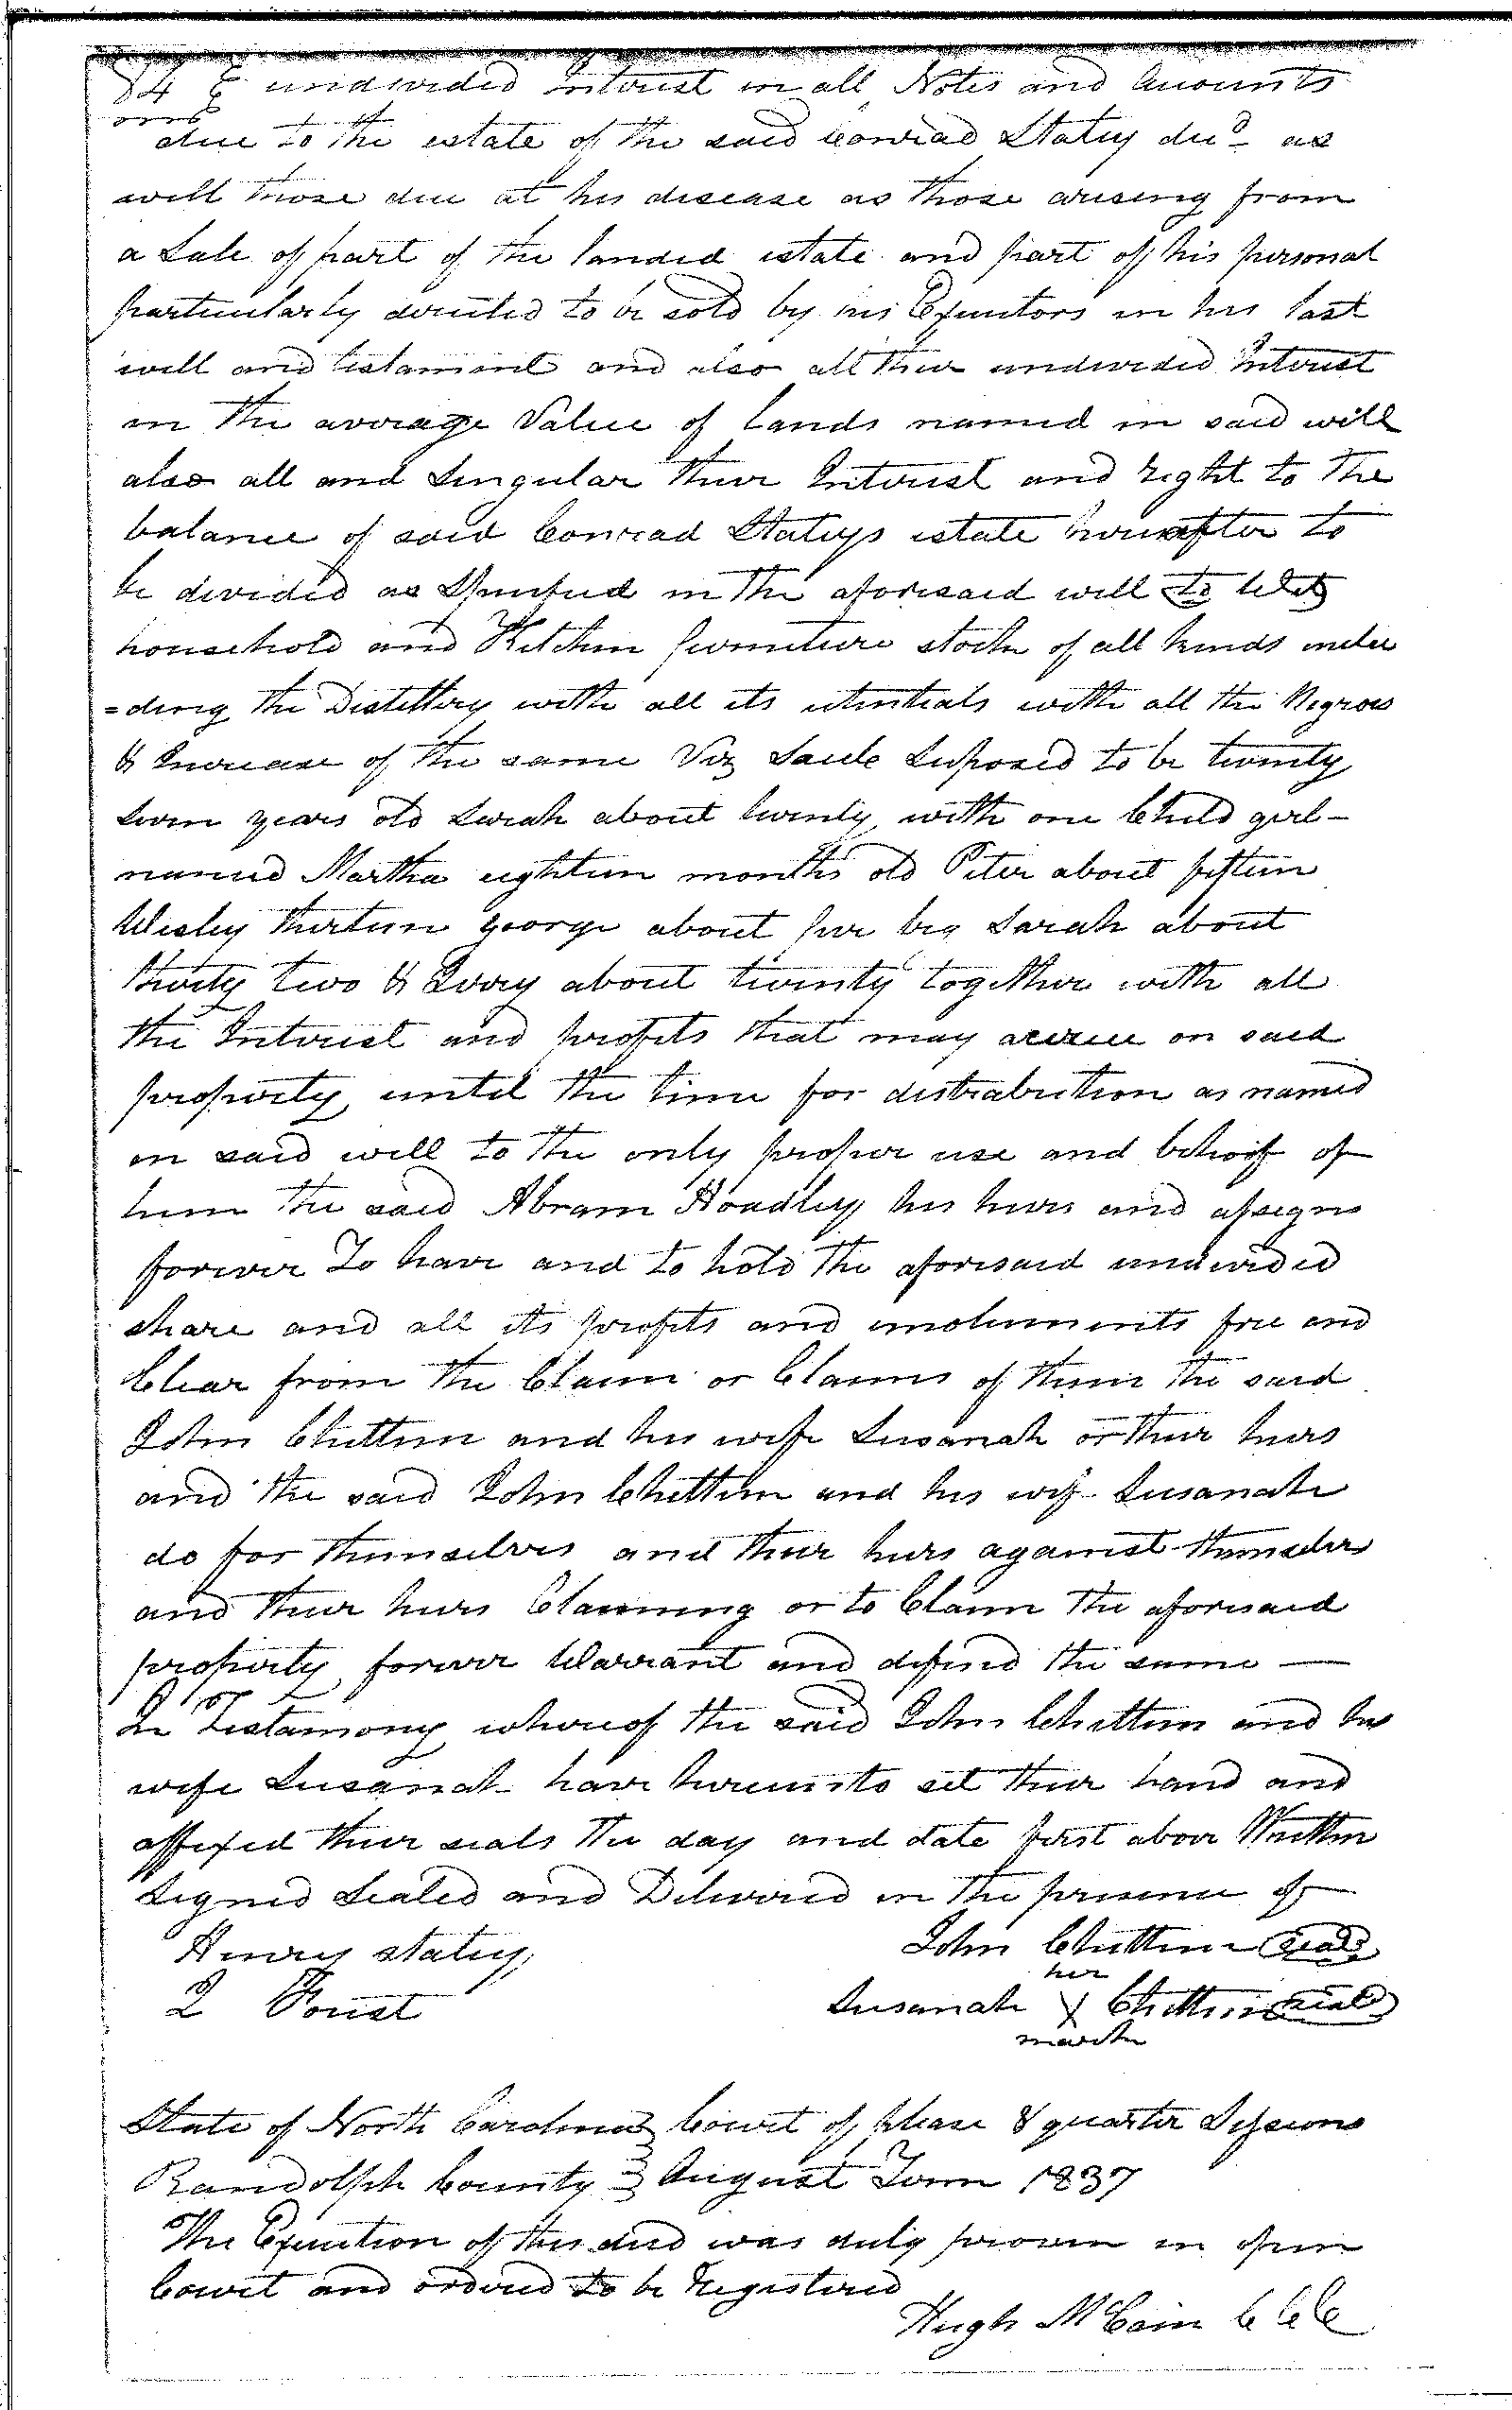 84 & undivided interest in all Notes and Accounts
due to the estate of the said Conrad Staley decd as
well those due at his disease as those arising from
a Sale of part of the landed estate and part of his personal
particularly devised to be sold by his Executors in his last
will and testament and also all their undivided Interest
in the average Value of lands named in said will
also all and Singular their Interest and right to the
balance of said Conrad Staleys estate hereafter to
be divided as Specified in the aforesaid will to wit
household and Kitchen furniture stock of all kinds inclu
=ding the Distillery with all its utentials with all the Negroes
& Increase of the same Viz Saul Suposed to be twenty
seven years old Sarah about twenty with one Child girl -
named Martha eighteen months old Peter about fifteen
Wesley thirteen george about five big Sarah about
thirty two & Ivory about twenty together with all
the Interest and profits that may accrue on said
property until the time for distrabution as named
in said will to the only proper use and behoof of
him the said Abram Hoadley his heirs and assigns
forever To have and to hold the aforesaid undivided
share and all its profits and emoluments free and
Clear from the Claim or Claims of them the said
John Chittim and his wife Susanah or their heirs
and the said John Chittim and his wife Susanah
do for themselves and their heirs against themselves
and their heirs Claiming or to Claim the aforesaid
property forever Warrant and defend the same —
In Testamony whereof the said John Chittim and his
wife Susanah have hereunto set their hand and
affixed their seals the day and date first above Written
Signed Sealed and Delivered in the presence of
Henry Staley John Chittim seal
her
Foust Susanah X Chittim seal
mark
State of North Carolina Court of please & quarter Sessions
Randolph County August Term 1837
The Execution of this deed was duly proven in open
Court and ordered to be Registered
Hugh McCain C C C